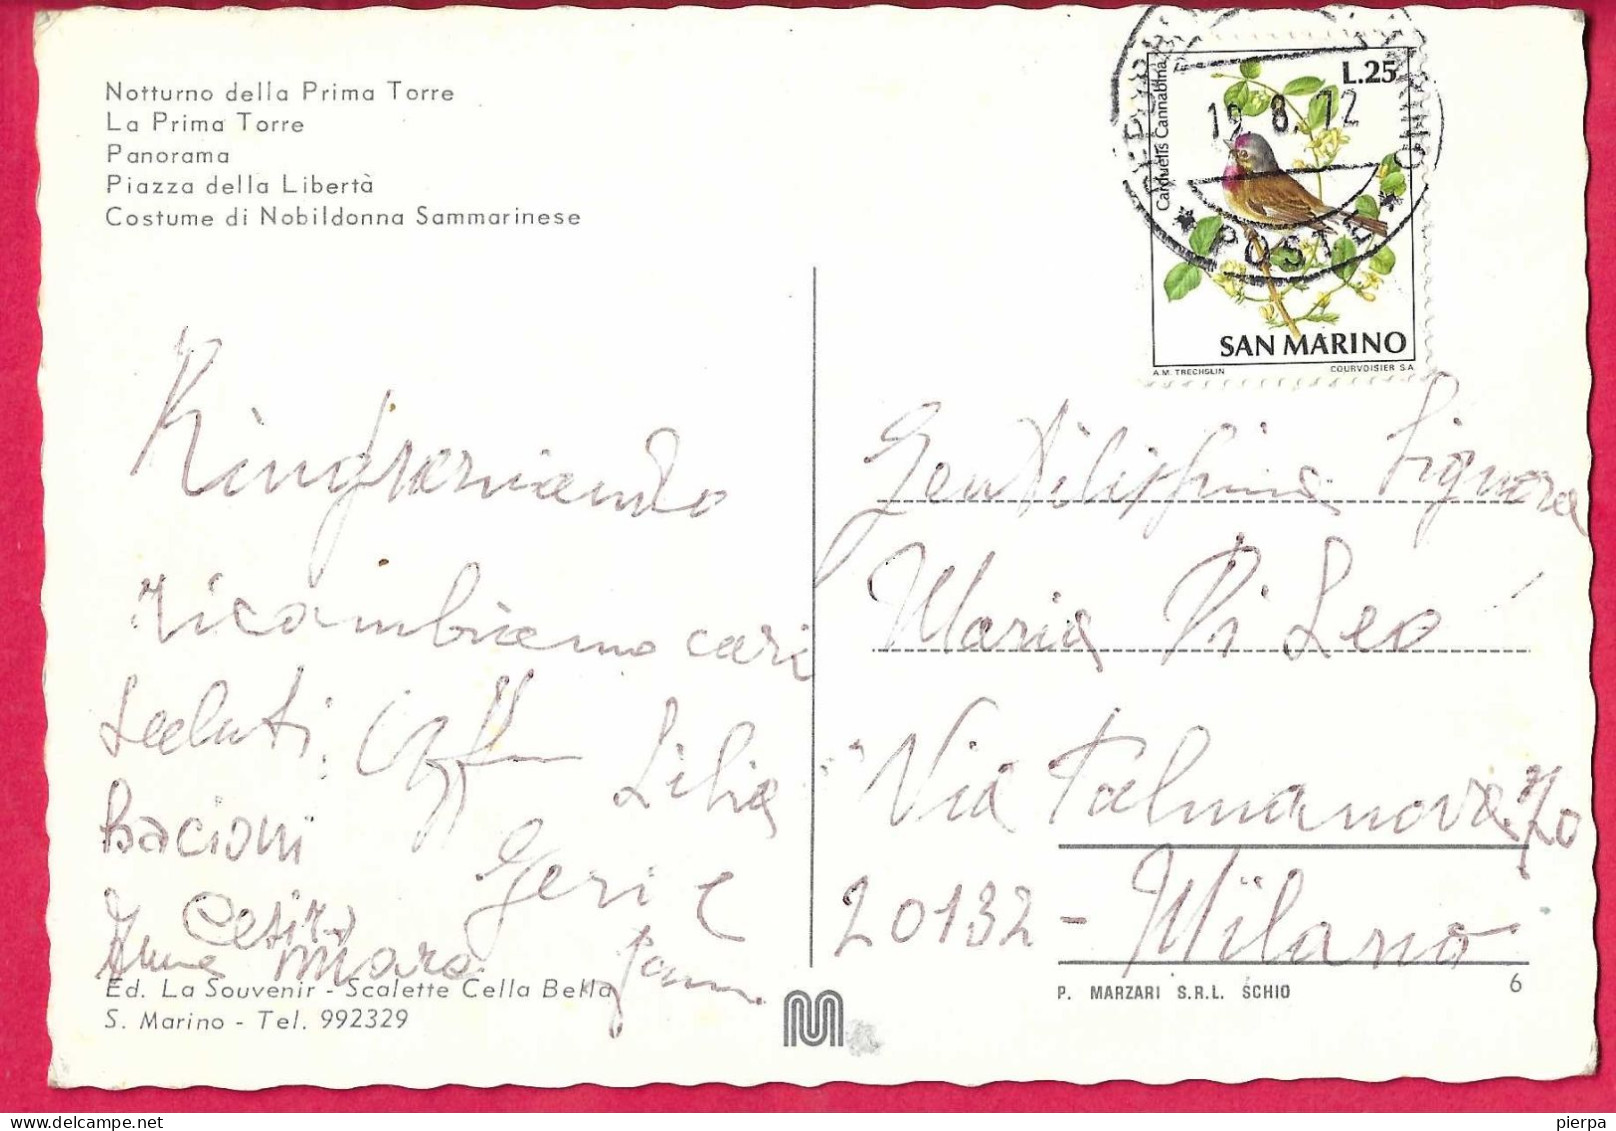 Notturno della Prima Torre
La Prima Torre
Panorama
Piazza della Libertà
Costume di Nobildonna Sammarinese
L.25
Carduelis Cannabina
19. 8. 72
* POSTE *
SAN MARINO
A.M. TRECHSLIN COURVOISIER S.A
Ringraziando
ricambiamo cari
saluti. Lilia
Bacioni Geri e
Cesira
Anna Mara
Gentilissima Signora
Maria Di Leo
Via Palmanova 70
20132 - Milano
Ed. La Souvenir - Scalette Cella Bella
S. Marino - Tel. 992329
P. MARZARI S.R.L. SCHIO 6
pierpa